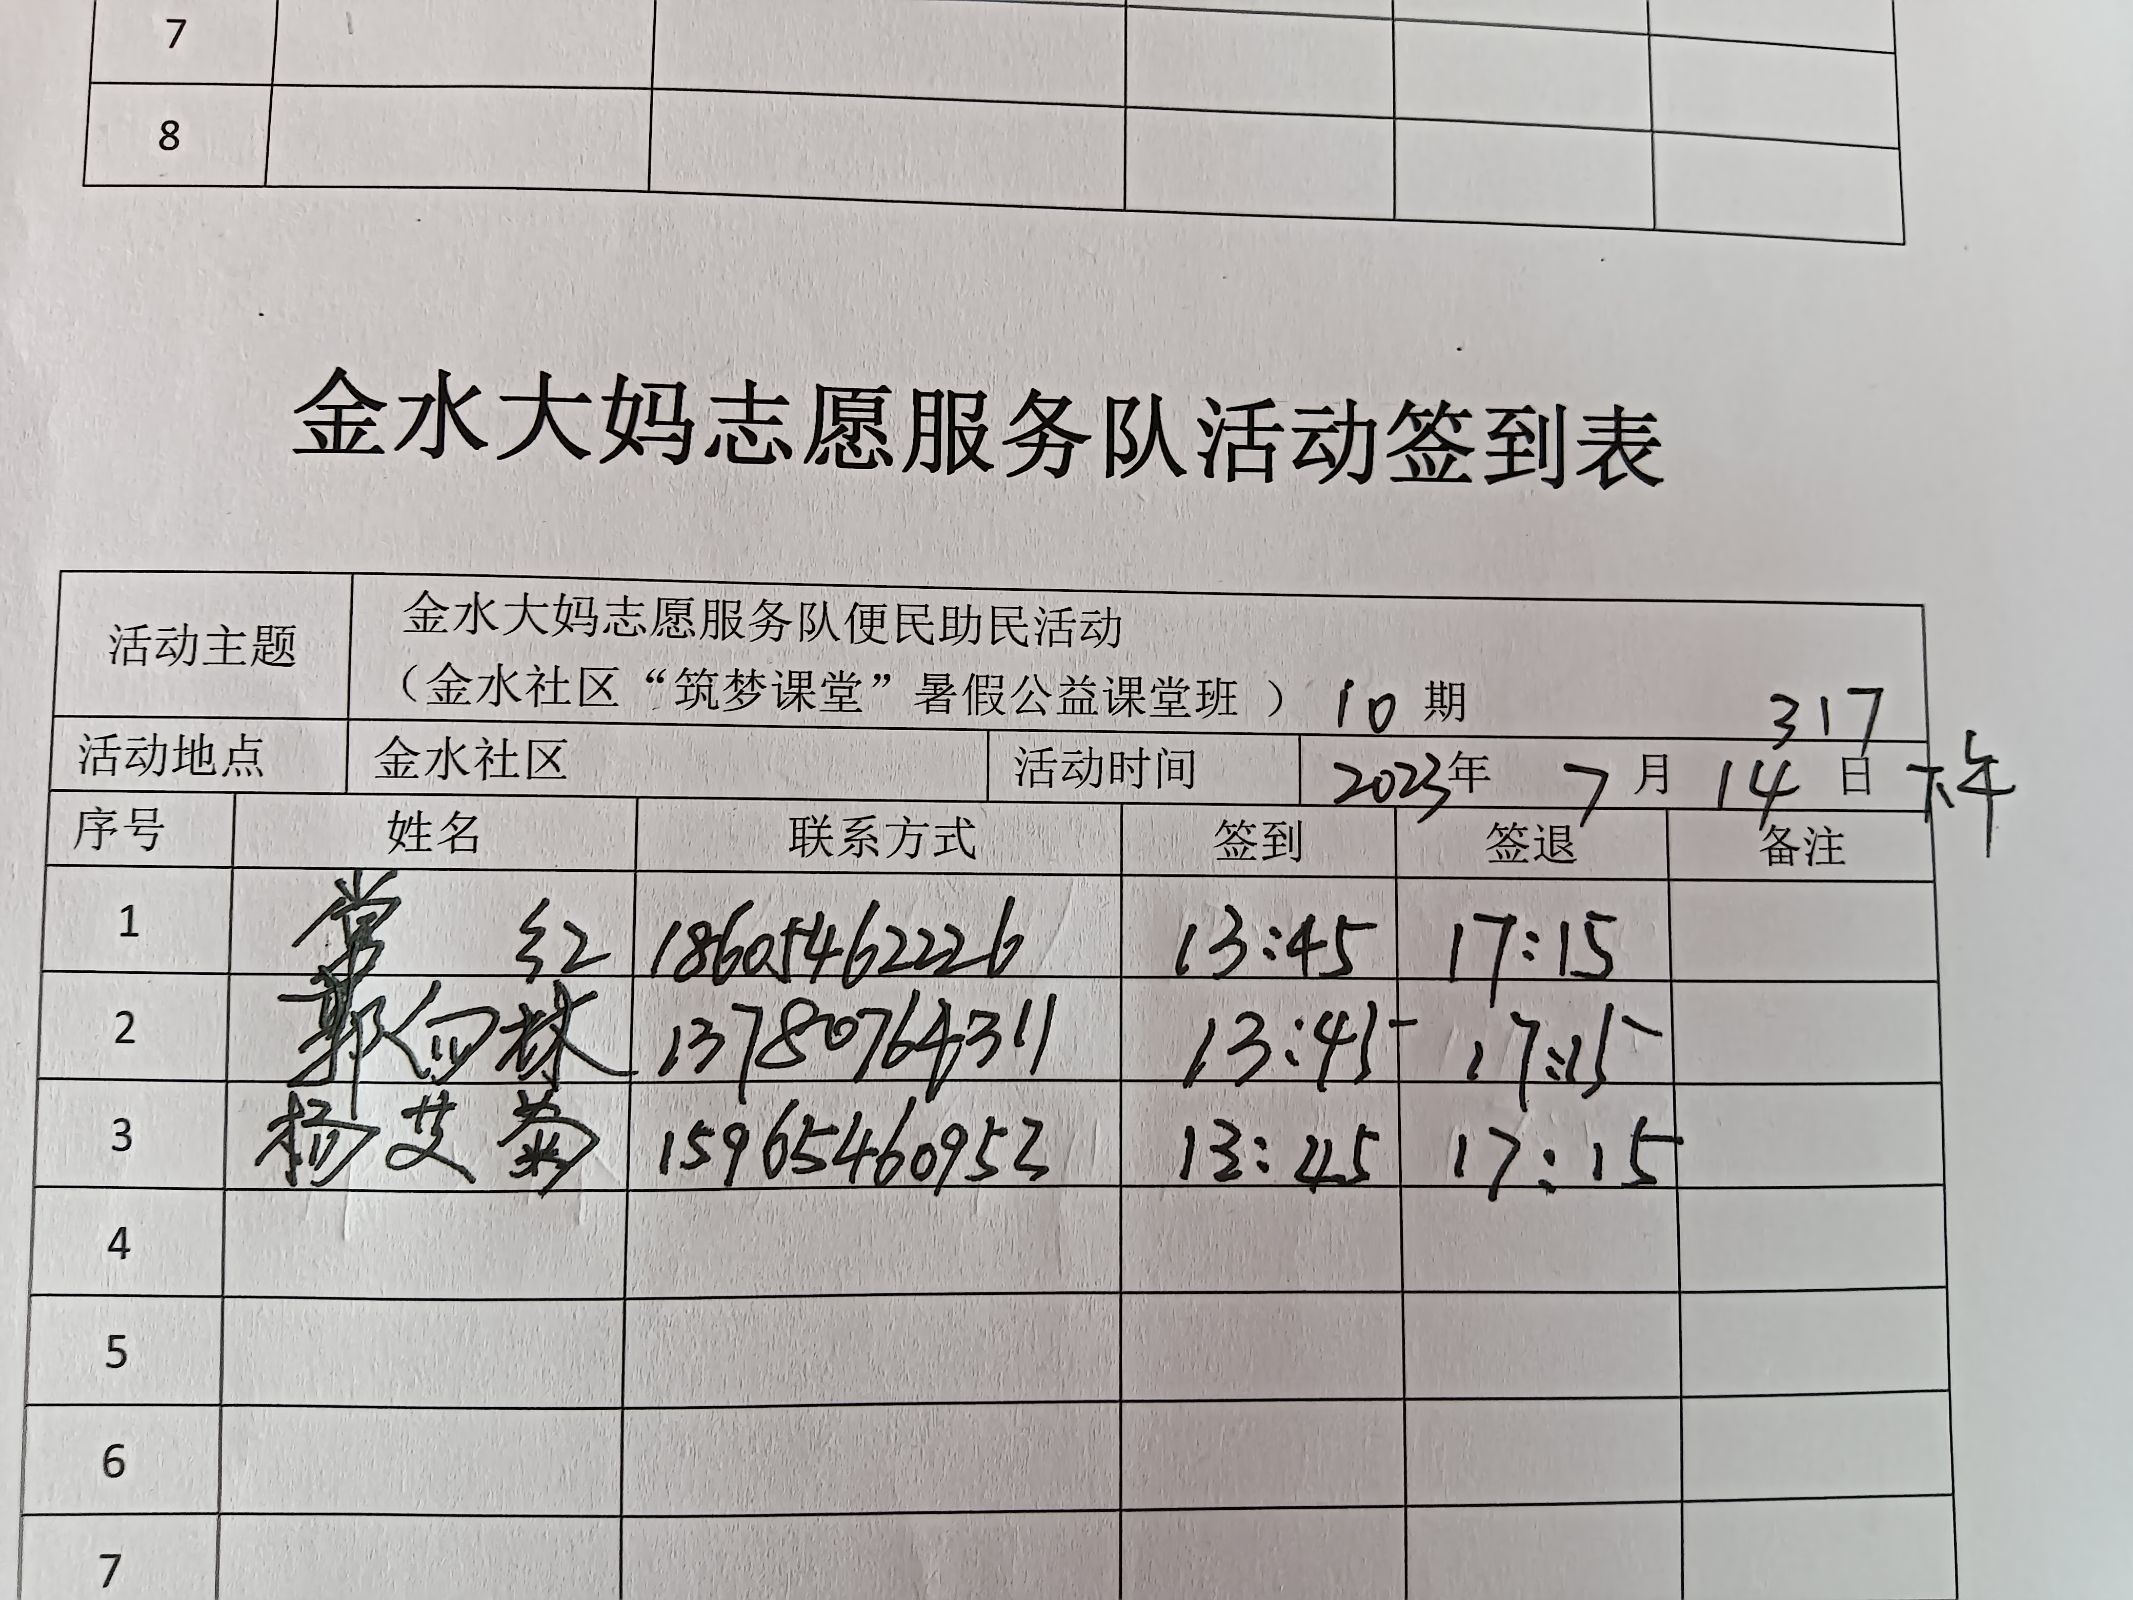 7
8
金水大妈志愿服务队活动签到表
活动主题 金水大妈志愿服务队便民助民活动
（金水社区“筑梦课堂”暑假公益课堂班 ） 10 期 317
活动地点 金水社区 活动时间 2023年 7 月 14 日 下午
序号 姓名 联系方式 签到 签退 备注
1 常 红 18605462226 13:45 17:15
2 郭向林 13780764311 13:45 17:15
3 杨艾菊 15965460952 13:45 17:15
4
5
6
7